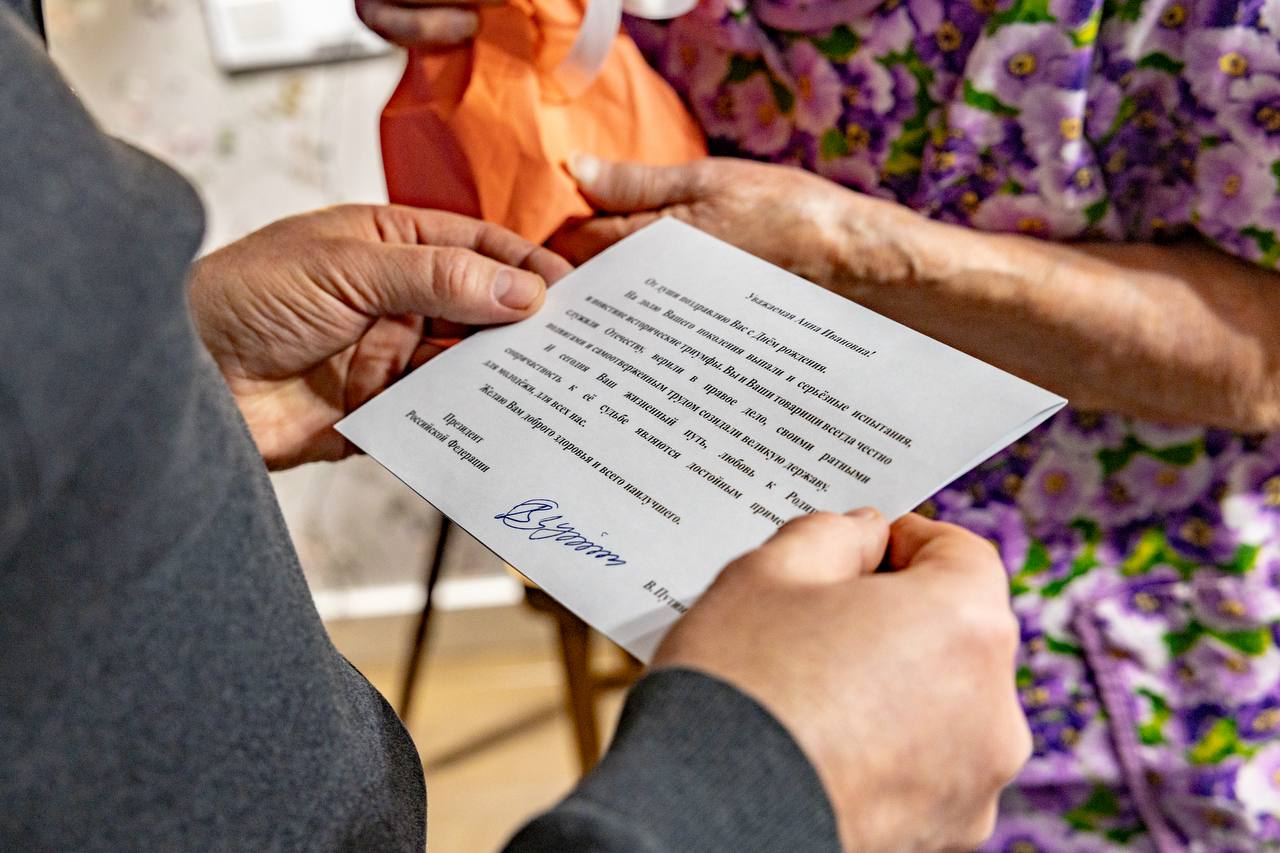 Уважаемая Анна Ивановна!
От души поздравляю Вас с Днём рождения.
На долю Вашего поколения выпали и серьёзные испытания,
и поистине исторические триумфы. Вы и Ваши товарищи всегда честно
служили Отечеству, верили в правое дело, своими ратными
подвигами и самоотверженным трудом созидали великую державу.
И сегодня Ваш жизненный путь, любовь к Родин
сопричастность к её судьбе являются достойным приме
для молодёжи, для всех нас.
Желаю Вам доброго здоровья и всего наилучшего.
Президент
Российской Федерации
В.Путин